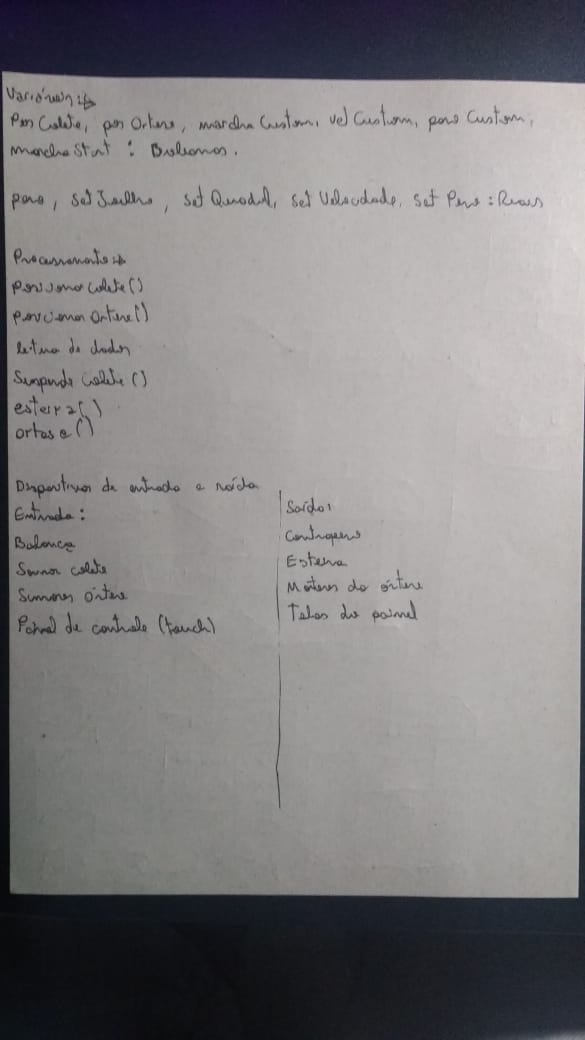 Variáveis:
Pos Colete, pos Ortese, marcha Custom, vel Custom, peso Custom,
marcha Start : Boleanos.
peso, set Joelho, set Quadril, set Velocidade, set Peso : Reais
Processamento:
posiciona colete()
posiciona Ortese()
leitura de dados
Suspende colete()
esteira()
ortese()
Dispositivos de entrada e saída
Entrada:
Balança
Sensor colete
Sensores órtese
Painel de controle (touch)
Saída:
Contrapeso
Esteira
Motores da órtese
Telas do painel